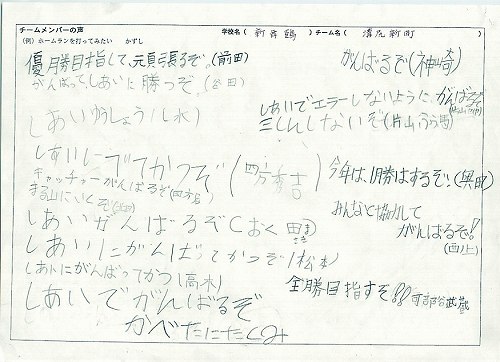 学校名( 新舞鶴 )チーム名( 溝尻新町 )
チームメンバーの声
(例)ホームランを打ってみたい かずし
優勝目指して、元気張るぞ。(前田)
がんばってしあいに勝つぞ。(谷田)
しあいゆうしょう(水)
しあいにでてかつぞ(四方秀吉)
キャッチャーがんばるぞ(四方)
まる山にいくぞ
しあいがんばるぞ(おく田
しあいにがんばってかつぞ(松本)
しあいにがんばってかつ(高木)
しあいでがんばるぞ
かべたにたくみ
がんばるぞ(神崎)
しあいでエラーしないようにがんばるぞ
三しんしないぞ(片山
今年は、1勝はするぞ!(奥田)
みんなと協力して
がんばるぞ!
(西上)
全勝目指すぞ!!可部谷武蔵